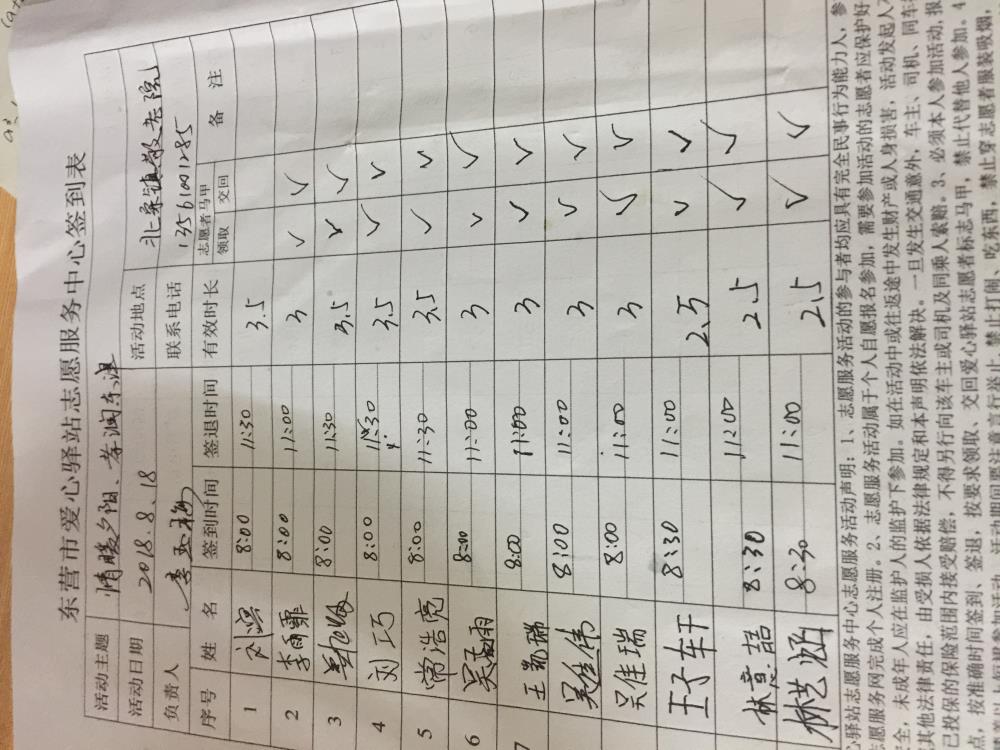 东营市爱心驿站志愿服务中心签到表
活动主题 情暖夕阳、孝润东营 活动地点 北宋镇敬老院
活动日期 2018.8.18 联系电话 13561001285
负责人 李玉梅
序号 姓名 签到时间 签退时间 有效时长 志愿者马甲 领取 交回 备注
1 8:00 11:30 3.5
2 李雨霏 8:00 11:00 3 ✓ ✓
3 8:00 11:30 3.5 ✓ ✓
4 刘巧 8:00 11:30 3.5 ✓ ✓
5 常浩亮 8:00 11:30 3.5 ✓ ✓
6 8:00 11:00 3 ✓ ✓
7 王 瑞 8:00 11:00 3 ✓ ✓
吴佳伟 8:00 11:00 3 ✓ ✓
吴佳瑞 8:00 11:00 3 ✓ ✓
王子轩 8:30 11:00 2.5 ✓ ✓
林意喆 8:30 11:00 2.5 ✓ ✓
林艺涵 8:30 11:00 2.5 ✓ ✓
心驿站志愿服务中心志愿服务活动声明：1、志愿服务活动的参与者均应具有完全民事行为能力人，参
志愿服务网完成个人注册。2、志愿服务活动属于个人自愿报名参加，需要参加活动的志愿者应保护好
全，未成年人应在监护人的监护下参加。如在活动中或往返途中发生财产或人身损害，活动发起人不
其他法律责任，由受损人依据法律规定和本声明依法解决。一旦发生交通意外，车主、司机、同车乘
已投保的保险范围内接受赔偿，不得另行向该车主或司机及同乘人索赔。3、必须本人参加活动，报
点，按准确时间签到、签退，按要求领取、交回爱心驿站志愿者标志马甲，禁止代替他人参加。4
活动期间要注意言行举止，禁止打闹、吃东西，禁止穿志愿者服装吸烟，